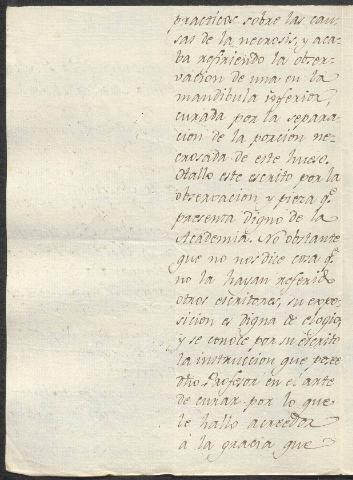 practicas sobre las cau-
sas de la necrosis, y aca-
ba refiriendo la obser-
vacion de una en la
mandibula inferior,
curada por la separa-
cion de la porcion ne-
crosada de este hueso.
Hallo este escrito por la
observacion y pieza q.e
presenta digno de la
Academia. No obstante
que no nos dice cosa q.e
no la hayan referido
otros escritores, su expo-
sicion es digna de elogio,
y se conoce por su escrito
la instruccion que posee
dho Profesor en el arte
de curar por lo que
le hallo acreedor
á la gracia que